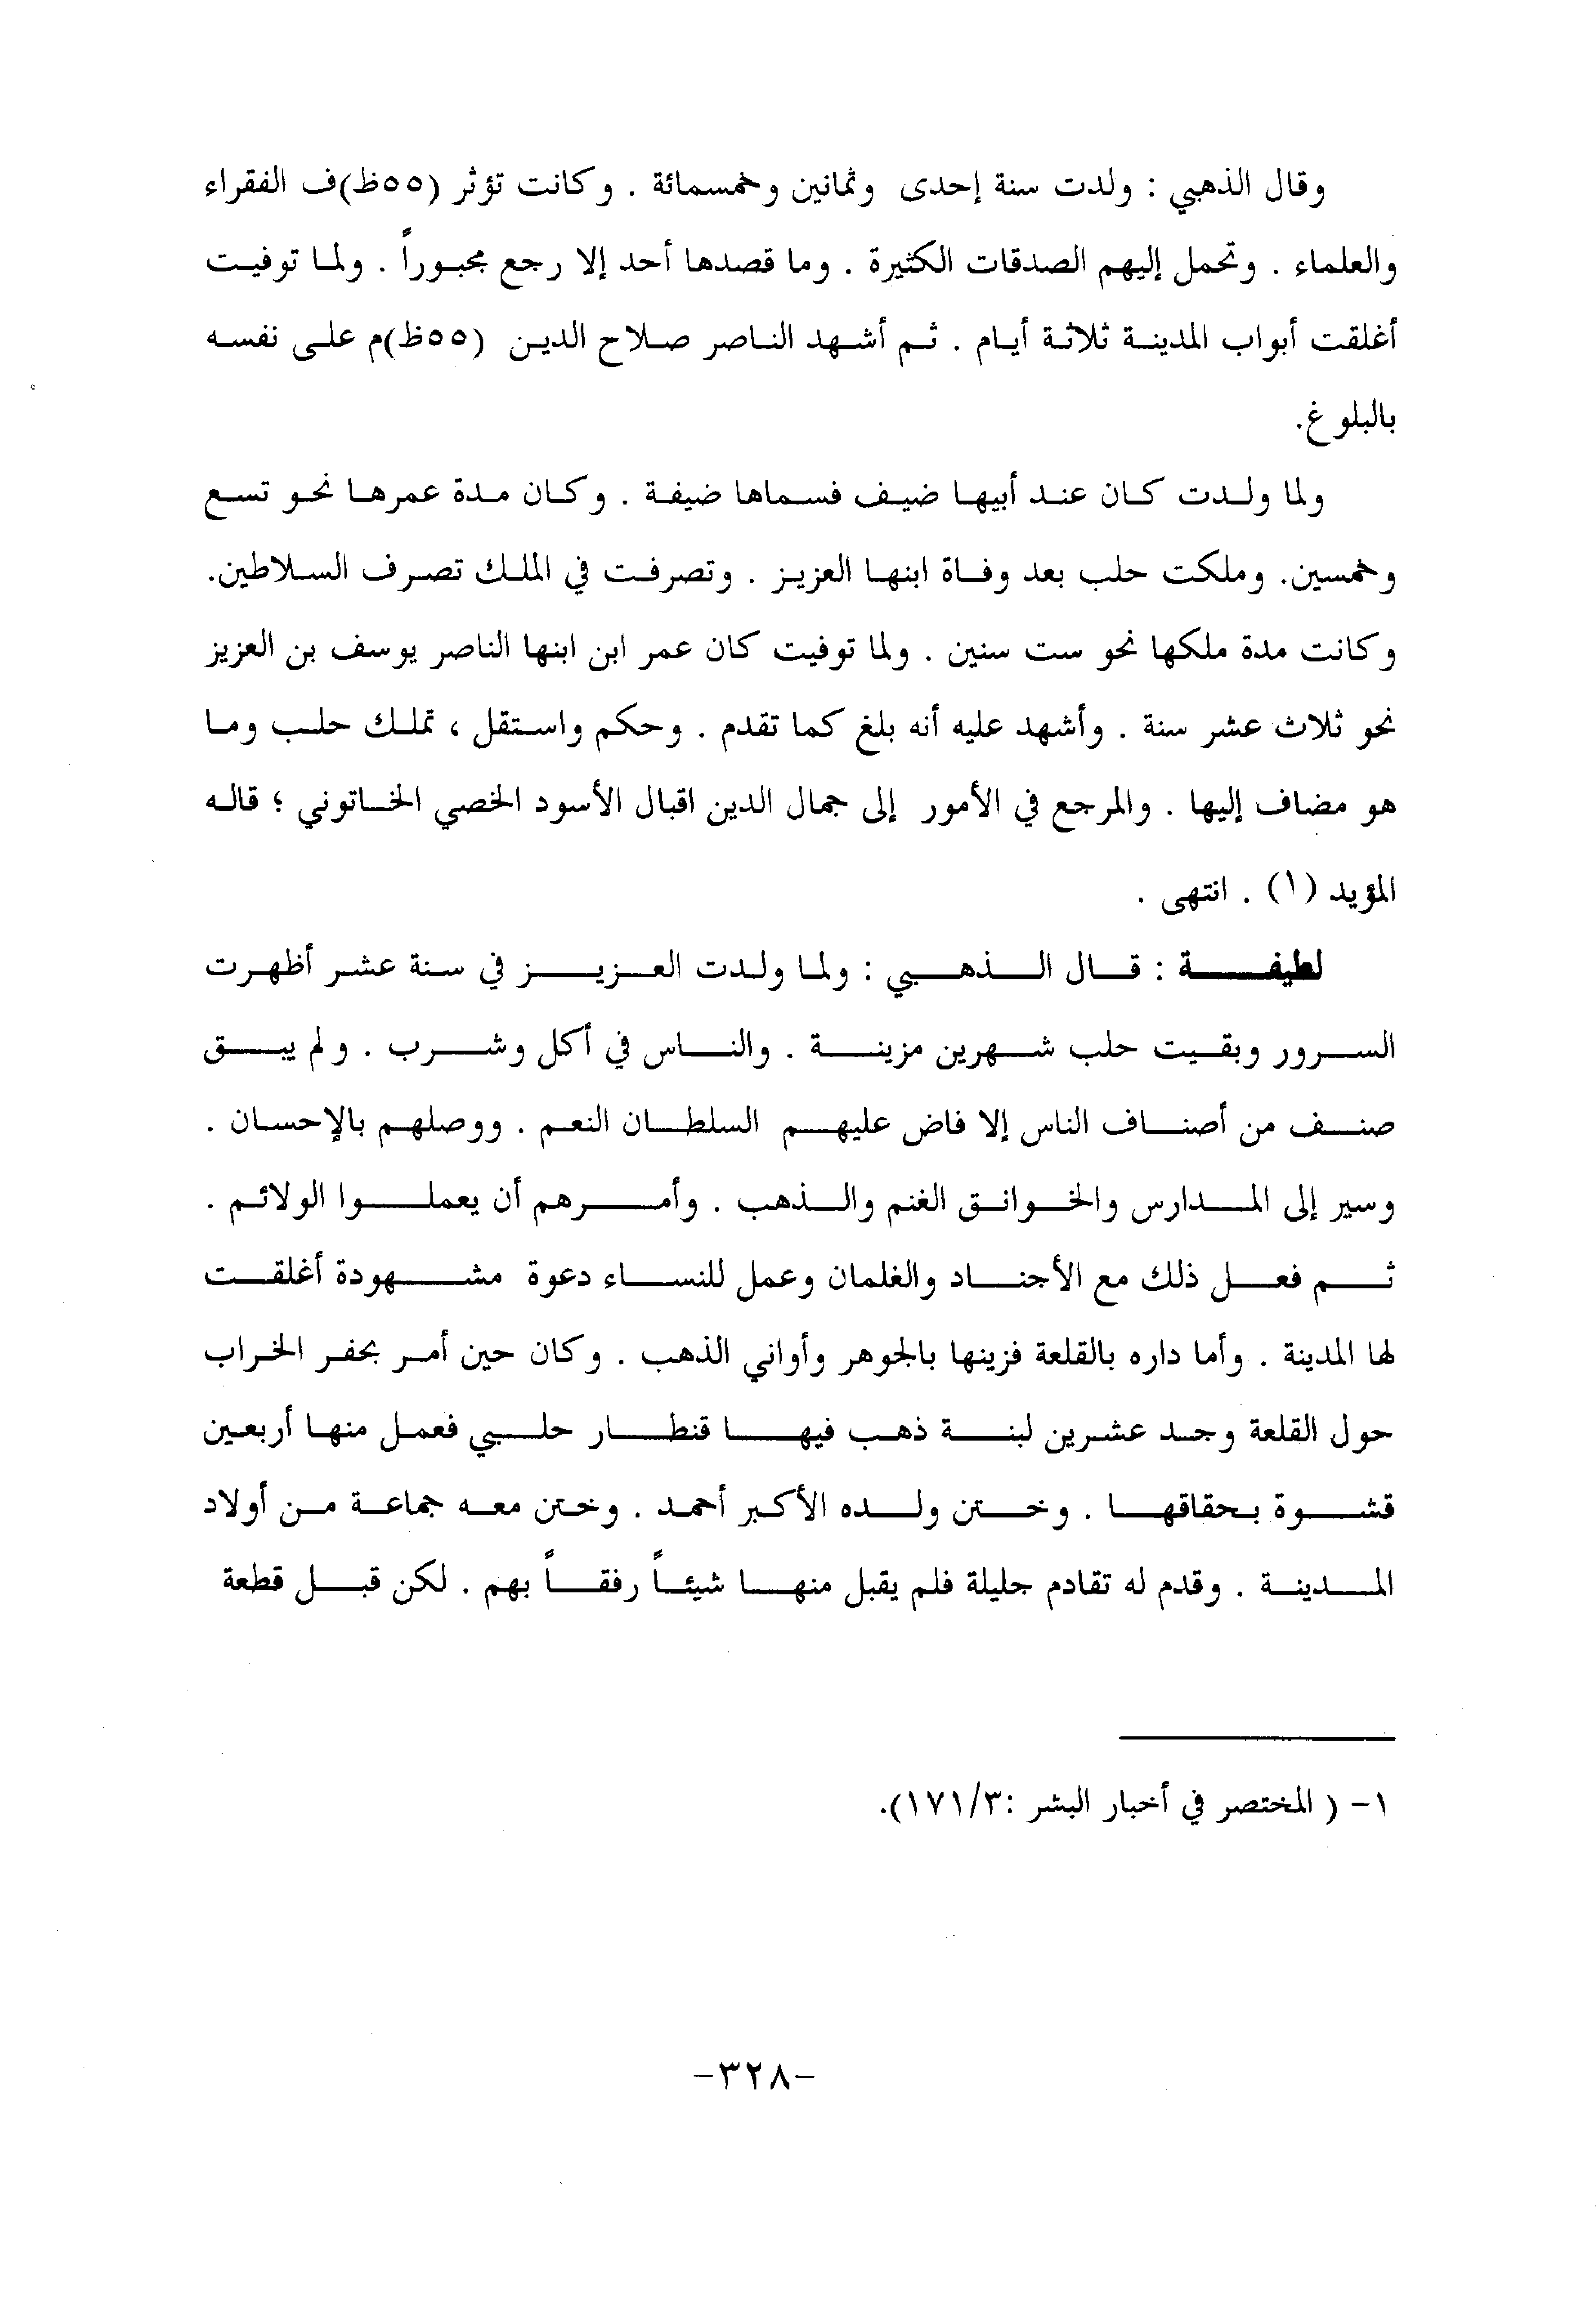 وقال الذهبي : ولدت سنة إحدى وثمانين وخمسمائة . وكانت تؤثر (٥٥ظ)ف الفقراء
والعلماء . وتحمل إليهم الصدقات الكثيرة . وما قصدها أحد إلا رجع مجبوراً . ولما توفيت
أغلقت أبواب المدينة ثلاثة أيام . ثم أشهد الناصر صلاح الدين (٥٥ظ)م على نفسه
بالبلوغ.
ولما ولدت كان عند أبيها ضيف فسماها ضيفة . وكان مدة عمرها نحو تسع
وخمسين. وملكت حلب بعد وفاة ابنها العزيز . وتصرفت في الملك تصرف السلاطين.
وكانت مدة ملكها نحو ست سنين . ولما توفيت كان عمر ابن ابنها الناصر يوسف بن العزيز
نحو ثلاث عشر سنة . وأشهد عليه أنه بلغ كما تقدم . وحكم واستقل ، تملك حلب وما
هو مضاف إليها . والمرجع في الأمور إلى جمال الدين اقبال الأسود الخصي الخاتوني ؛ قاله
المؤيد (١) . انتهى .
لطيفة : قال الذهبي : ولما ولدت العزيز في سنة عشر أظهرت
السرور وبقيت حلب شهرين مزينة . والناس في أكل وشرب . ولم يبق
صنف من أصناف الناس إلا فاض عليهم السلطان النعم . ووصلهم بالإحسان .
وسير إلى المدارس والخوانق الغنم والذهب . وأمرهم أن يعملوا الولائم .
ثم فعل ذلك مع الأجناد والغلمان وعمل للنساء دعوة مشهودة أغلقت
لها المدينة . وأما داره بالقلعة فزينها بالجوهر وأواني الذهب . وكان حين أمر بحفر الخراب
حول القلعة وجد عشرين لبنة ذهب فيها قنطار حلبي فعمل منها أربعين
قشوة بحقاقها . وختن ولده الأكبر أحمد . وختن معه جماعة من أولاد
المدينة . وقدم له تقادم جليلة فلم يقبل منها شيئاً رفقاً بهم . لكن قبل قطعة
١- ( المختصر في أخبار البشر :١٧١/٣).
-٣٢٨-